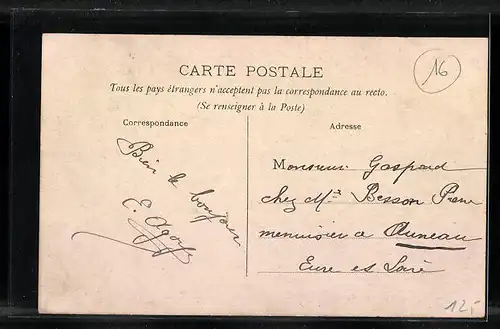 16
CARTE POSTALE
Tous les pays étrangers n'acceptent pas la correspondance au recto.
(Se renseigner à la Poste)
Correspondance
Bien le bonjour
E.
Adresse
Monsieur Gaspard
chez Mr Besson
menuisier a Auneau
Eure et Loire
12,-